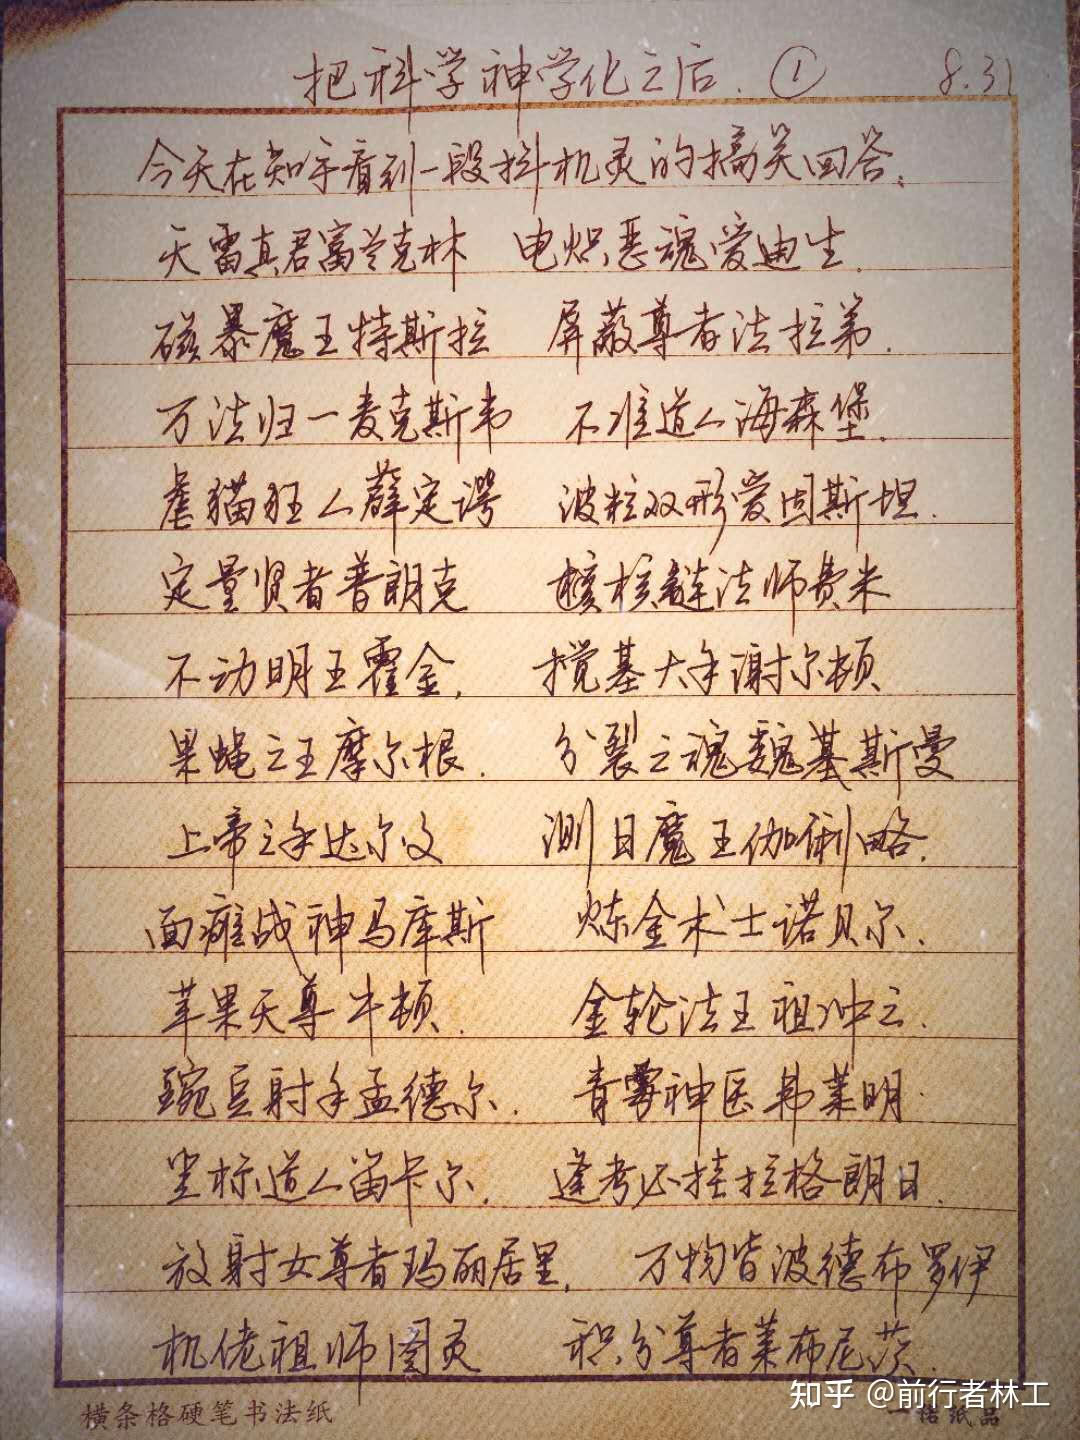 把科学神学化之后. ① 8.31
今天在知乎看到一段抖机灵的搞笑回答、
天雷真君富兰克林 电炽恶魂爱迪生.
磁暴魔王特斯拉 屏蔽尊者法拉第.
万法归一麦克斯韦 不准道人海森堡.
虐猫狂人薛定谔 波粒双形爱因斯坦.
定量贤者普朗克 核链法师费米
不动明王霍金, 搅基大手谢尔顿
果蝇之王摩尔根. 分裂之魂魏基斯曼
上帝之手达尔文 测日魔王伽俐略.
面瘫战神马库斯 炼金术士诺贝尔.
苹果天尊牛顿. 金轮法王祖冲之.
豌豆射手孟德尔. 青霉神医弗莱明.
坐标道人笛卡尔. 逢考必挂拉格朗日.
放射女尊者玛丽居里, 万物皆波德布罗伊
机佬祖师图灵 积分尊者莱布尼茨.
横条格硬笔书法纸
纸品
知乎 @前行者林工